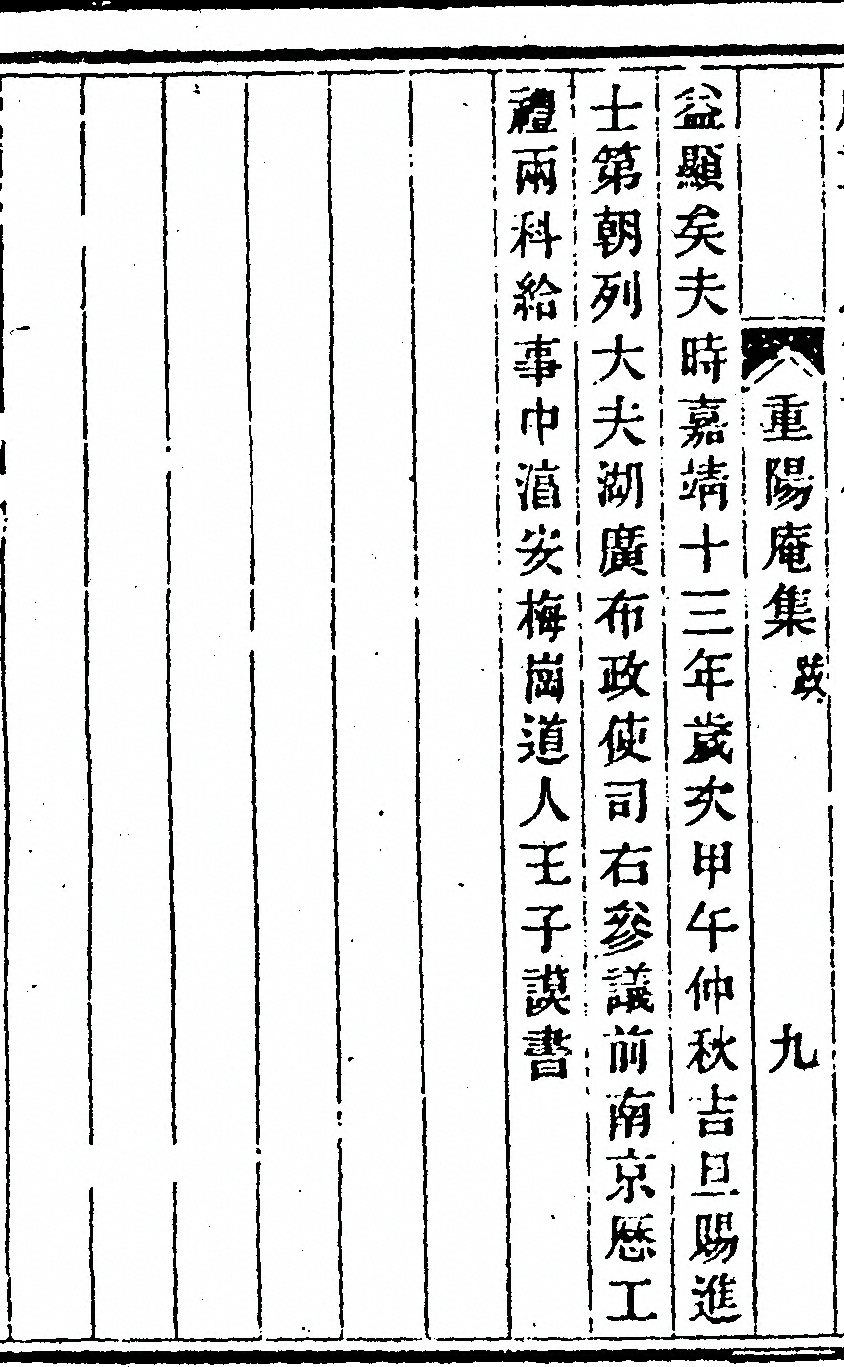 重陽庵集 跋 九
益顯矣夫時嘉靖十三年歲次甲午仲秋吉旦賜進
士第朝列大夫湖廣布政使司右參議前南京歷工
禮兩科給事中滇安梅崗道人王子謨書